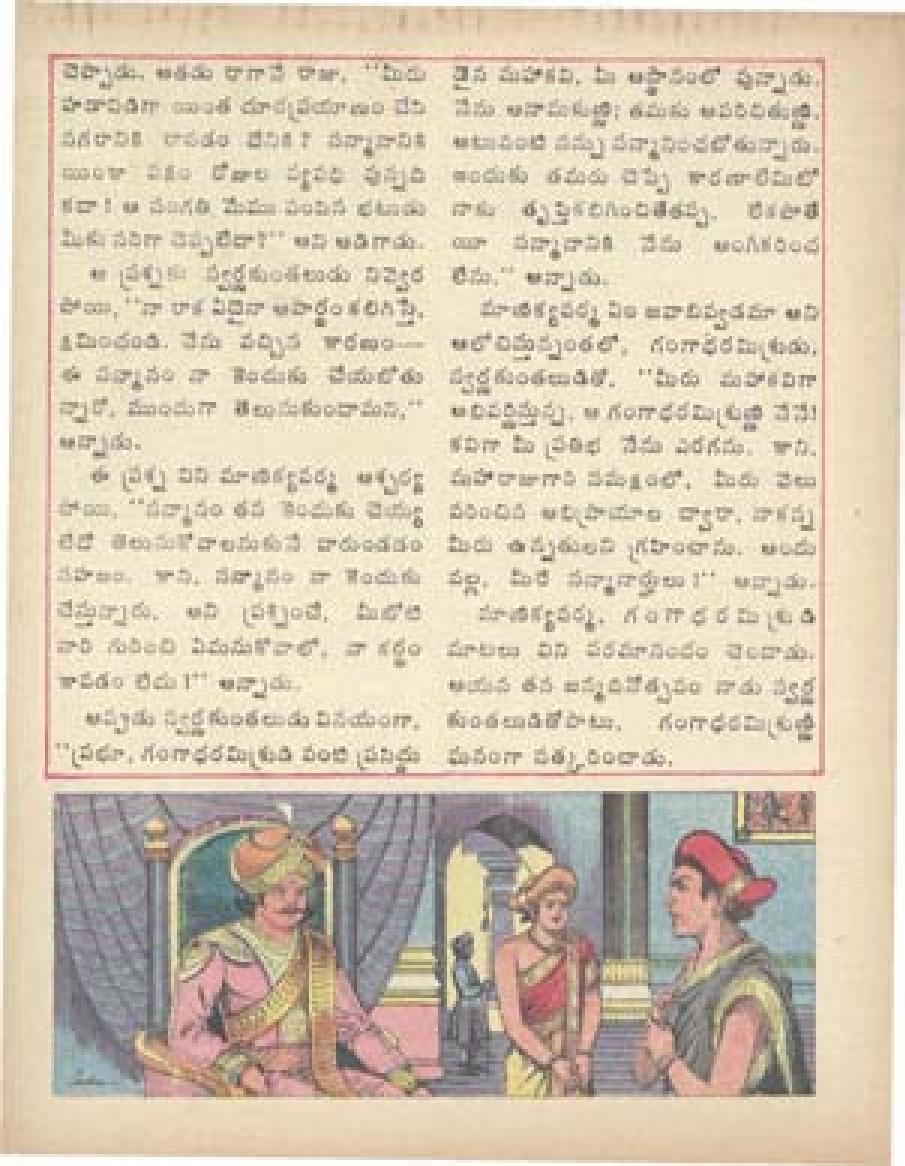 చెప్పాడు. అతడు రాగానే రాజు, "మీరు
హఠావిడిగా యింత దూరప్రయాణం చేసి
నగరానికి రావడం దేనికి? సన్మానానికి
యింకా పక్షం రోజుల వ్యవధి వున్నది
కదా! ఆ సంగతి మేము పంపిన భటుడు
మీకు సరిగా చెప్పలేదా?" అని అడిగాడు.
ఆ ప్రశ్నకు స్వర్ణకుంతలుడు నివ్వెర
పోయి, "నా రాక ఏదైనా అపార్థంకలిగిస్తే,
క్షమించండి. నేను వచ్చిన కారణం—
ఈ సన్మానం నా కెందుకు చేయబోతు
న్నారో, ముందుగా తెలుసుకుందామని,"
అన్నాడు.
ఈ ప్రశ్న విని మాణిక్యవర్మ ఆశ్చర్య
పోయి, "సన్మానం తన కెందుకు చెయ్య
లేదో తెలుసుకోవాలనుకునే వారుండడం
సహజం. కాని, సన్మానం నా కెందుకు
చేస్తున్నారు, అని ప్రశ్నించే, మీబోటి
వారి గురించి ఏమనుకోవాలో, నా కర్థం
కావడం లేదు!" అన్నాడు.
అప్పుడు స్వర్ణకుంతలుడు వినయంగా,
"ప్రభూ, గంగాధరమిశ్రుడి వంటి ప్రసిద్ధు
డైన మహాకవి, మీ ఆస్థానంలో వున్నాడు.
నేను అనామకుణ్ణి; తమకు అపరిచితుణ్ణి.
అటువంటి నన్ను సన్మానించబోతున్నారు.
అందుకు తమరు చెప్పే కారణాలేమిటో
నాకు తృప్తికలిగించితేతప్ప, లేకపోతే
యీ సన్మానానికి నేను అంగీకరించ
లేను," అన్నాడు.
మాణిక్యవర్మ ఏం జవాబివ్వడమా అని
ఆలోచిస్తున్నంతలో, గంగాధరమిశ్రుడు,
స్వర్ణకుంతలుడితో, "మీరు మహాకవిగా
అభివర్ణిస్తున్న, ఆ గంగాధరమిశ్రుణ్ణి నేనే!
కవిగా మీ ప్రతిభ నేను ఎరగను. కాని,
మహారాజుగారి సమక్షంలో, మీరు వెలు
వరించిన అభిప్రాయాల ద్వారా, నాకన్న
మీరు ఉన్నతులని గ్రహించాను. అందు
వల్ల, మీరే సన్మానార్హులు!" అన్నాడు.
మాణిక్యవర్మ, గంగాధరమిశ్రుడి
మాటలు విని పరమానందం చెందాడు.
ఆయన తన జన్మదినోత్సవం నాడు స్వర్ణ
కుంతలుడితోపాటు, గంగాధరమిశ్రుణ్ణి
ఘనంగా సత్కరించాడు.